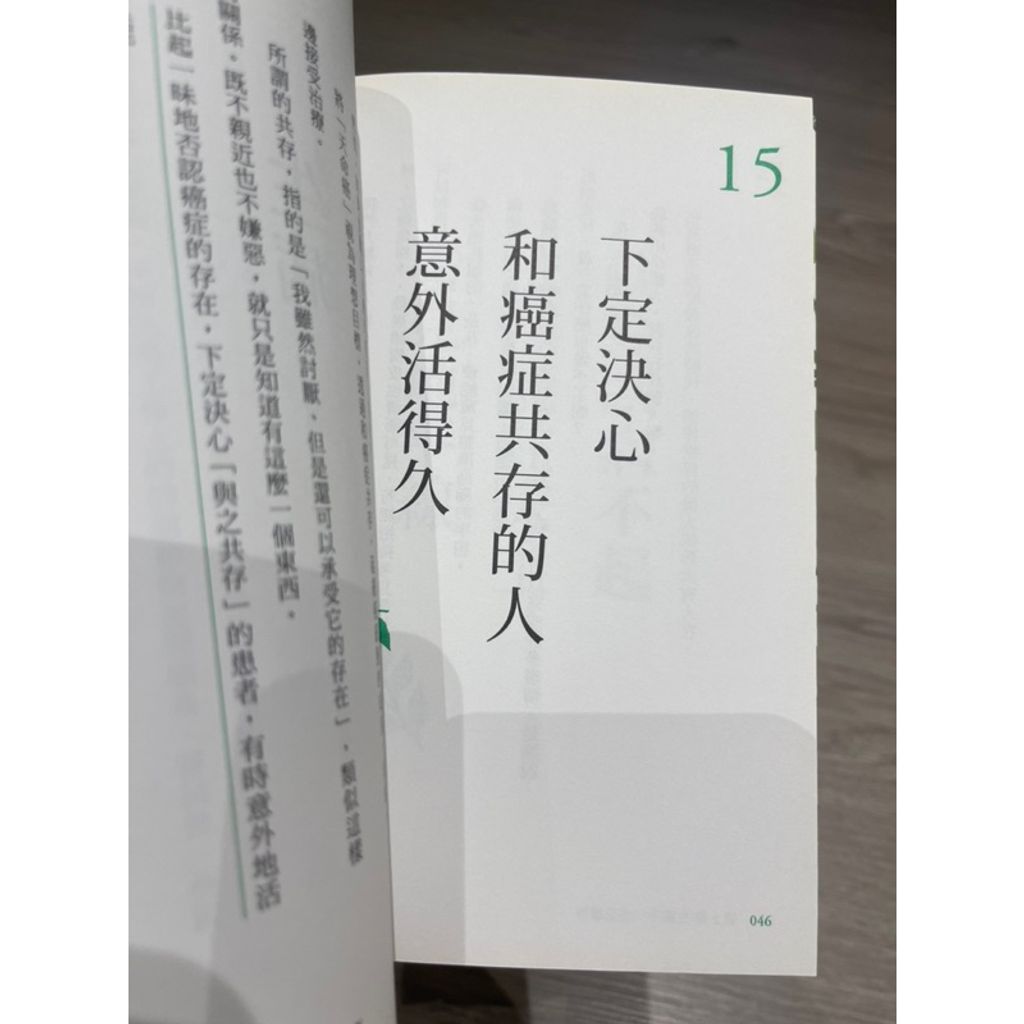 15
下定決心
和癌症共存的人
意外活得久
046
邊接受治療。
所謂的共存，指的是「我雖然討厭、但是還可以承受它的存在」，類似這樣
關係。既不親近也不嫌惡，就只是知道有這麼一個東西。
比起一昧地否認癌症的存在，下定決心「與之共存」的患者，有時意外地活